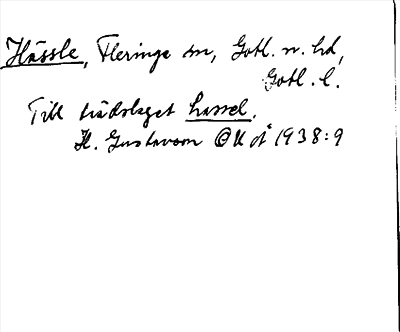 Hässle, Fleringe sn, Gotl. n. hd,
Gotl. l.
Till trädslaget hassel.
H. Gustavson OUÅ 1938:9